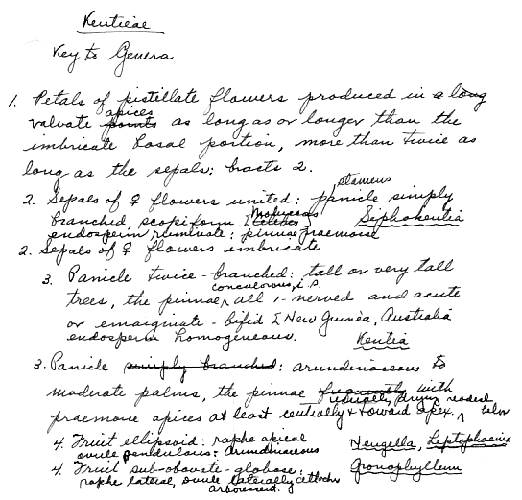 Kentieae
Key to Genera
1. Petals of pistillate flowers produced in a long
apices
valvate points as long as or longer than the
imbricate basal portion, more than twice as
long as the sepals: bracts 2.
stamens
2. Sepals of ♀ flowers united: panicle simply
branched, scopiform Moluccas Celebes Siphokentia
endosperm ruminate: pinnae praemorse
2. Sepals of ♀ flowers imbricate
3. Panicle twice-branched: tall or very tall
concolorous,
trees, the pinnae, all 1-nerved and acute
or emarginate-bifid New Guinea, Australia
endosperm homogeneous. Kentia
3. Panicle simply branched: arundinaceous to
moderate palms, the pinnae frequently with
praemorse apices at least centrally & toward apex.
4. Fruit ellipsoid: raphe apical Nengella, Leptophoenix
ovule pendulous: arundinaceous
4. Fruit sub-obovate-globose: Gronophyllum
raphe lateral, ovule laterally attached
arborescent.